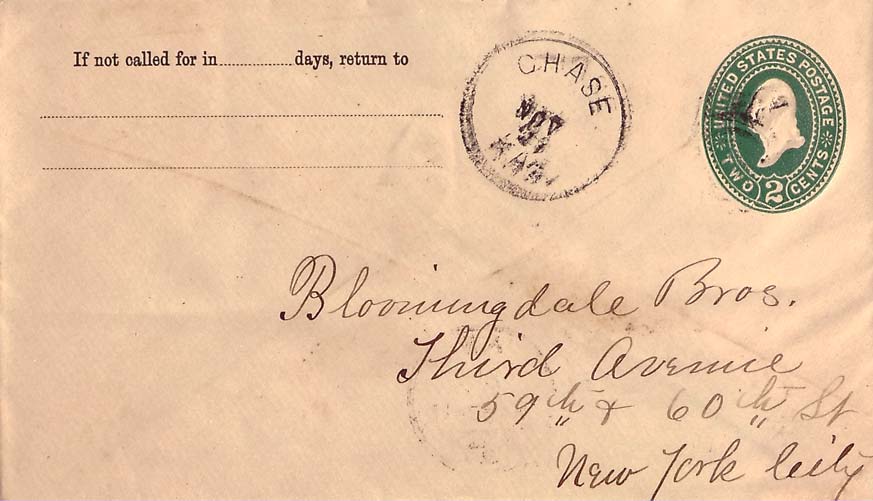 If not called for in..............days, return to
CHASE
NOV
21
KAS.
UNITED STATES POSTAGE
TWO 2 CENTS
Bloomingdale Bros.
Third Avenue
59th & 60th St
New York City